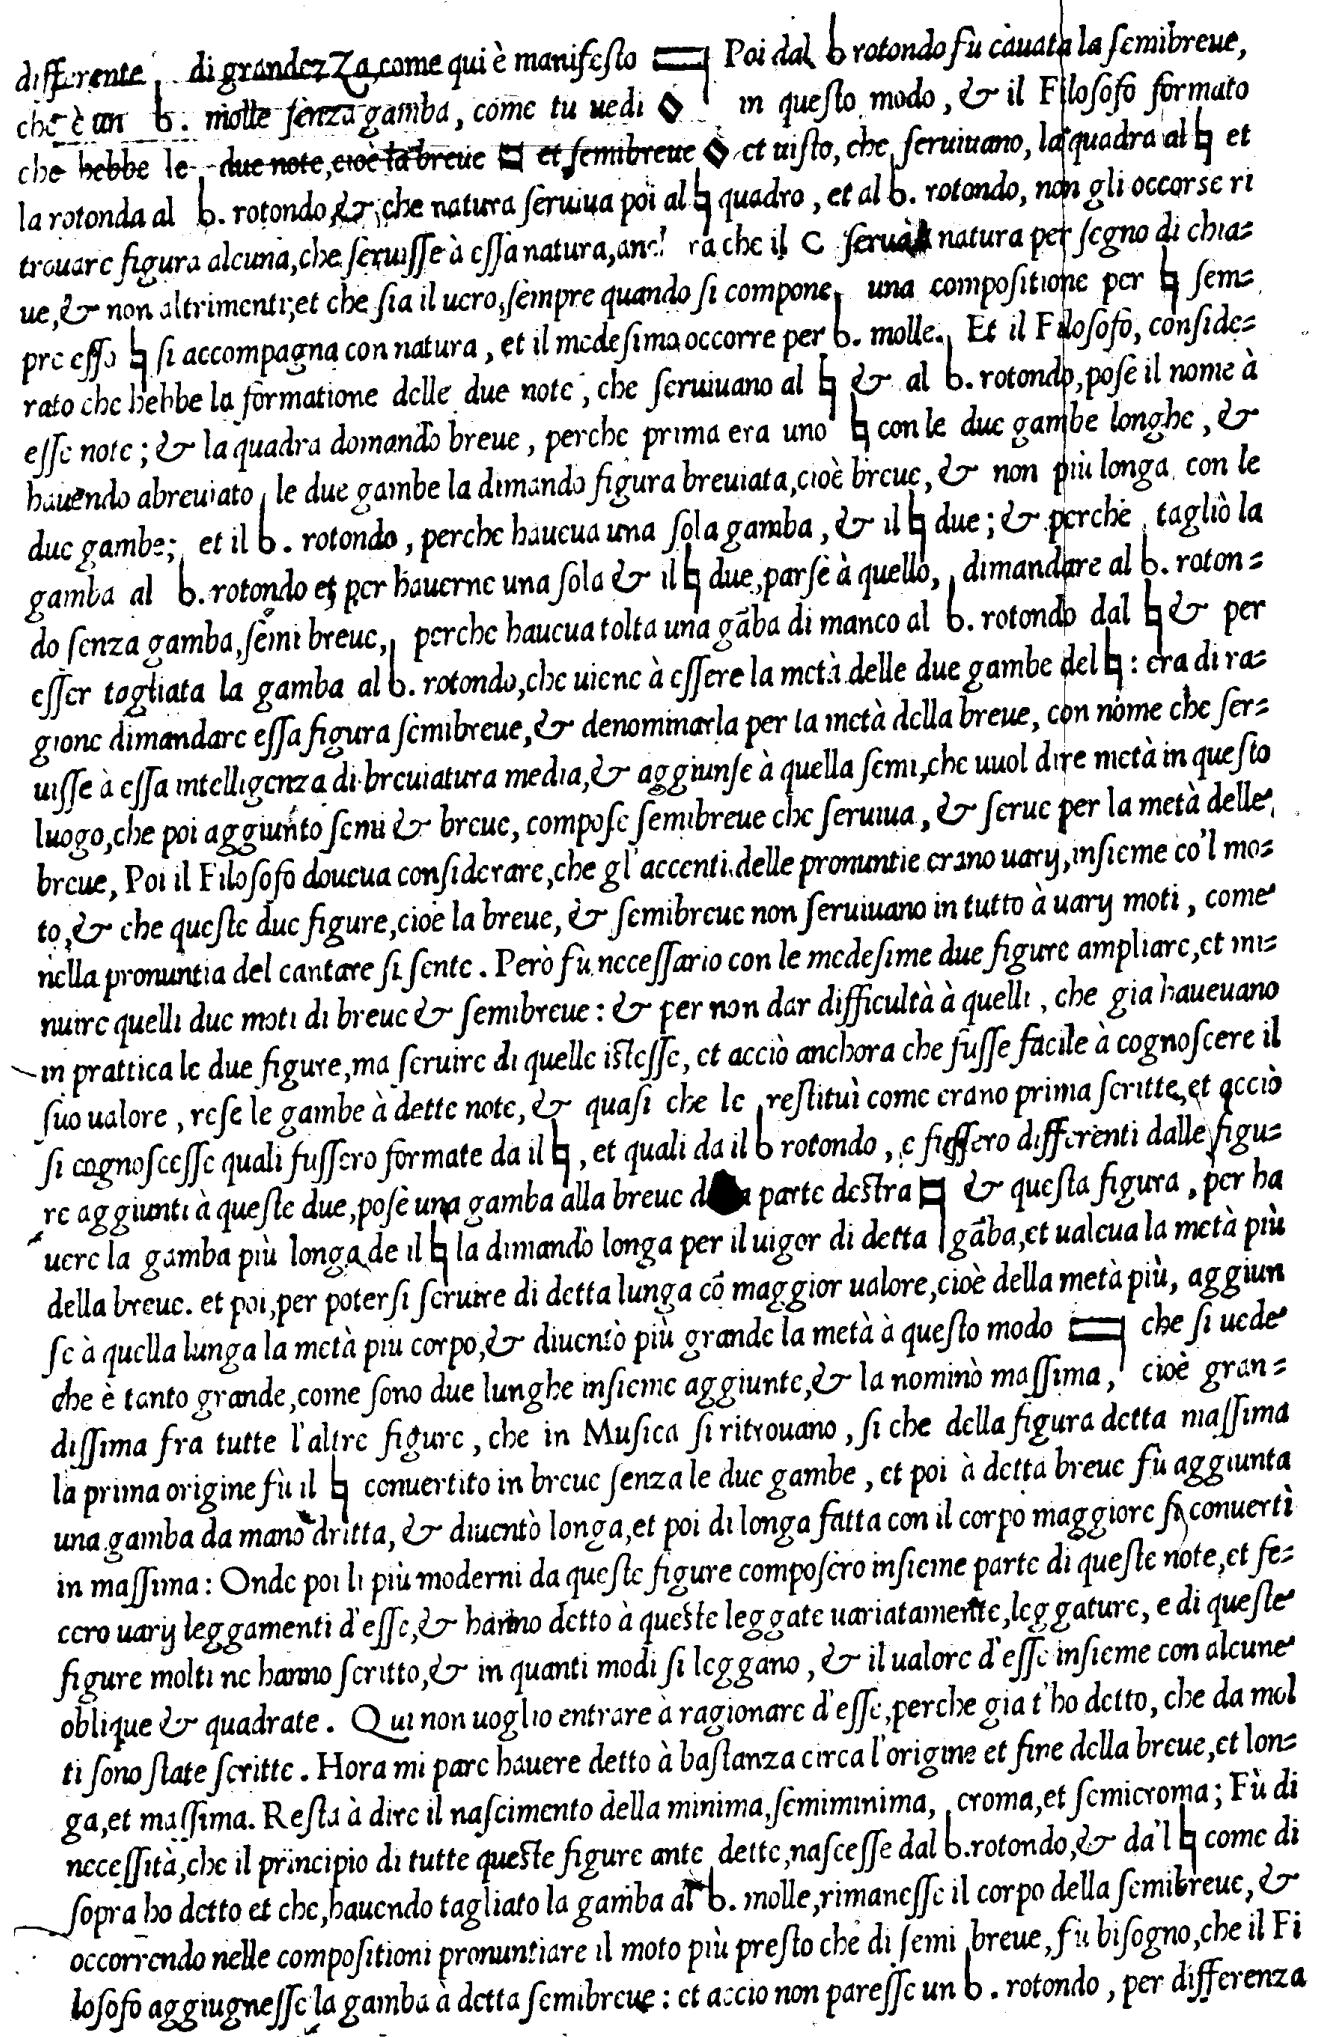 differente di grandezza, come qui è manifesto Poi dal b rotondo fù cauata la ſemibreue,
che è un b. molle ſenza gamba, come tu uedi in queſto modo, & il Filoſofo formato
che hebbe le due note, cioè la breue et ſemibreue et uiſto, che ſeruiuano, la quadra al ♮ et
la rotonda al b. rotondo, & che natura ſeruiua poi al ♮ quadro, et al b. rotondo, non gli occorse ri
trouare figura alcuna, che ſeruiſſe à eſſa natura, che il C natura per ſegno di chia=
ue, & non altrimenti; et che ſia il uero, ſempre quando ſi compone una compoſitione per ♮ ſem=
pre eſſo ♮ ſi accompagna con natura, et il medeſimo occorre per b. molle. Et il Filoſofo, conſide=
rato che hebbe la formatione delle due note, che ſeruiuano al ♮ & al b. rotondo, poſe il nome à
eſſe note; & la quadra domandò breue, perche prima era uno ♮ con le due gambe longhe, &
hauendo abreuiato le due gambe la dimandò figura breuiata, cioè breue, & non più longa con le
due gambe; et il b. rotondo, perche haueua una ſola gamba, & il ♮ due; & perche tagliò la
gamba al b. rotondo et per hauerne una ſola & il ♮ due, parſe à quello, dimandare al b. roton=
do ſenza gamba, ſemi breue, perche haueua tolta una gãba di manco al b. rotondo dal ♮ & per
eſſer tagliata la gamba al b. rotondo, che uiene à eſſere la metà delle due gambe del ♮: era di ra=
gione dimandare eſſa figura ſemibreue, & denominarla per la metà della breue, con nome che ſer=
uiſſe à eſſa intelligenza di breuiatura media, & aggiunſe à quella ſemi, che uuol dire metà in queſto
luogo, che poi aggiunto ſemi & breue, compoſe ſemibreue che ſeruiua, & ſerue per la metà delle
breue, Poi il Filoſofo doueua conſiderare, che gl'accenti delle pronuntie erano uarij, inſieme cò'l mo=
to, & che queſte due figure, cioè la breue, & ſemibreue non ſeruiuano in tutto à uarij moti, come
nella pronuntia del cantare ſi ſente. Però fù neceſſario con le medeſime due figure ampliare, et mi=
nuire quelli due moti di breue & ſemibreue: & per non dar difficultà à quelli, che gia haueuano
in prattica le due figure, ma ſeruire di quelle isteſſe, et acciò anchora che fuſſe facile à cognoſcere il
ſuo ualore, reſe le gambe à dette note, & quaſi che le reſtituì come erano prima ſcritte, et acciò
ſi cognoſceſſe quali fuſſero formate da il ♮, et quali da il b rotondo, e fuſſero differenti dalle figu=
re aggiunti à queſte due, poſe una gamba alla breue parte destra & queſta figura, per ha
uere la gamba più longa de il ♮ la dimandò longa per il uigor di detta gãba, et ualeua la metà più
della breue. et poi, per poterſi ſeruire di detta lunga cõ maggior ualore, cioè della metà più, aggiun
ſe à quella lunga la metà piu corpo, & diuentò più grande la metà à queſto modo che ſi uede
che è tanto grande, come ſono due lunghe inſieme aggiunte, & la nominò maſſima, cioè gran=
diſſima fra tutte l'altre figure, che in Muſica ſi ritrouano, ſi che della figura detta maſſima
la prima origine fù il ♮ conuertito in breue ſenza le due gambe, et poi à detta breue fù aggiunta
una gamba da mano dritta, & diuentò longa, et poi di longa fatta con il corpo maggiore ſi conuertì
in maſſima: Onde poi li più moderni da queſte figure compoſero inſieme parte di queſte note, et fe=
cero uarij leggamenti d'eſſe, & hanno detto à queste leggate uariatamente, leggature, e di queſte
figure molti ne hanno ſcritto, & in quanti modi ſi leggano, & il ualore d'eſſe inſieme con alcune
oblique & quadrate. Qui non uoglio entrare à ragionare d'eſſe, perche gia t'ho detto, che da mol
ti ſono ſtate ſcritte. Hora mi pare hauere detto à baſtanza circa l'origine et fine della breue, et lon=
ga, et maſſima. Reſta à dire il naſcimento della minima, ſemiminima, croma, et ſemicroma; Fù di
neceſſità, che il principio di tutte queſte figure ante dette, naſceſſe dal b. rotondo, & da'l ♮ come di
ſopra ho detto et che, hauendo tagliato la gamba al b. molle, rimaneſſe il corpo della ſemibreue, &
occorrendo nelle compoſitioni pronuntiare il moto più preſto che di ſemi breue, fù biſogno, che il Fi
loſofo aggiugneſſe la gamba à detta ſemibreue: et accio non pareſſe un b. rotondo, per differenza